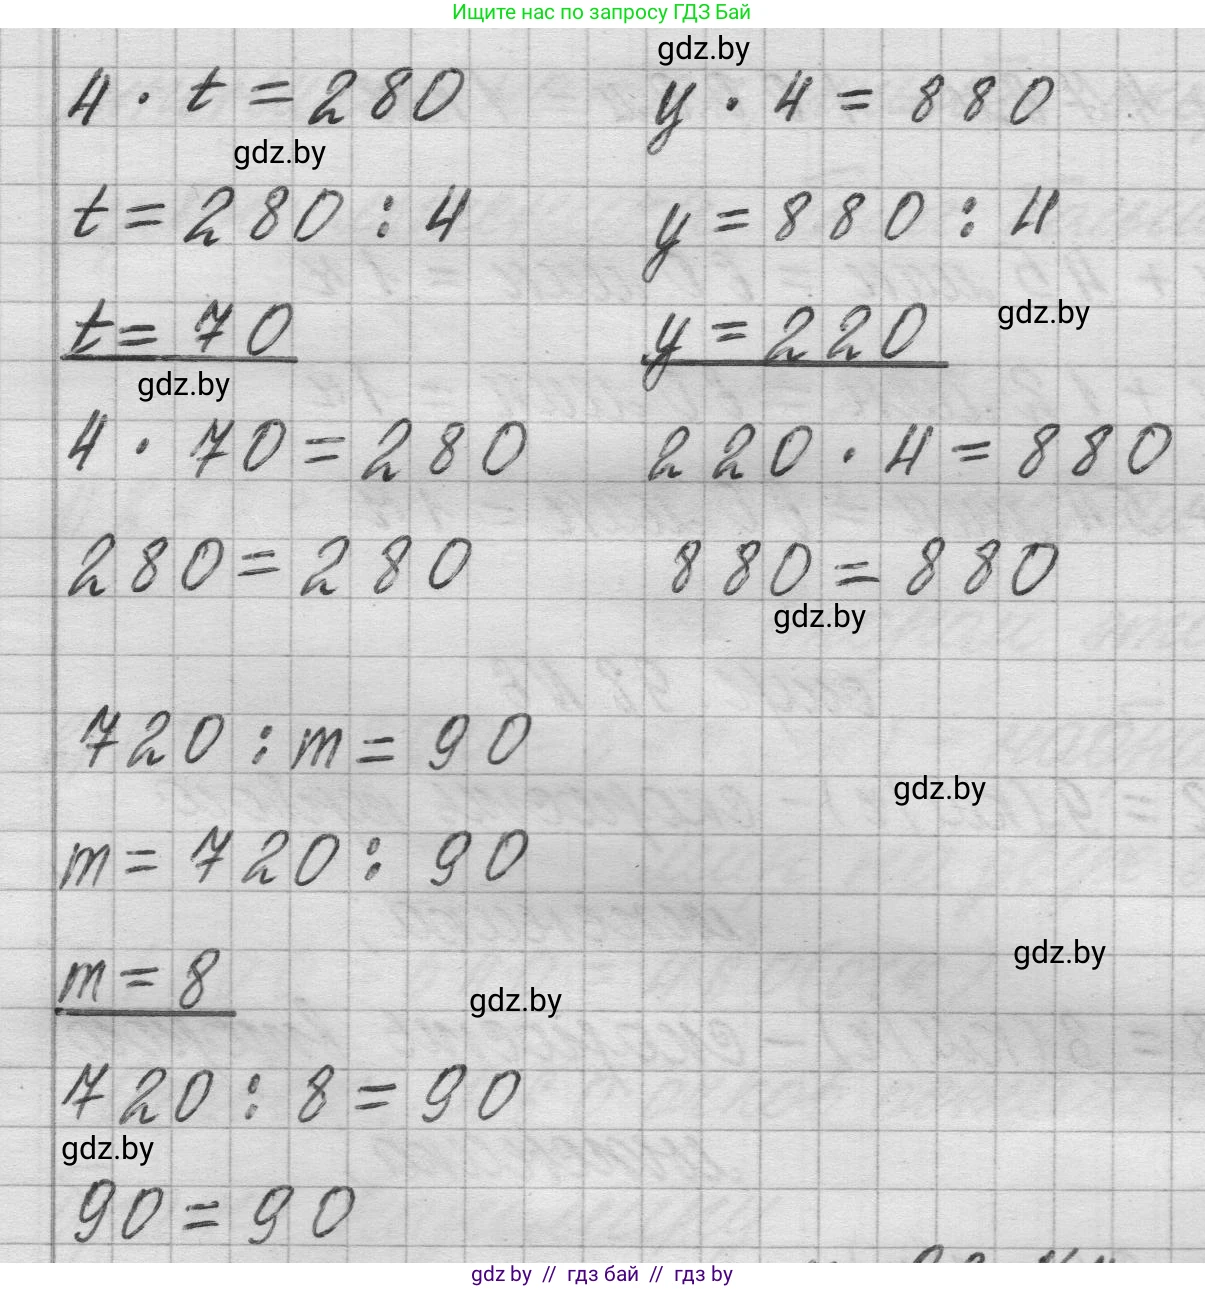 Ищите нас по запросу ГДЗ Бай
gdz.by
4 · t = 280
gdz.by
t = 280 : 4
t = 70
gdz.by
4 · 70 = 280
280 = 280
y · 4 = 880
y = 880 : 4
gdz.by
y = 220
220 · 4 = 880
880 = 880
gdz.by
720 : m = 90
gdz.by
m = 720 : 90
gdz.by
m = 8
gdz.by
720 : 8 = 90
gdz.by
90 = 90
gdz by // гдз бай // гдз by